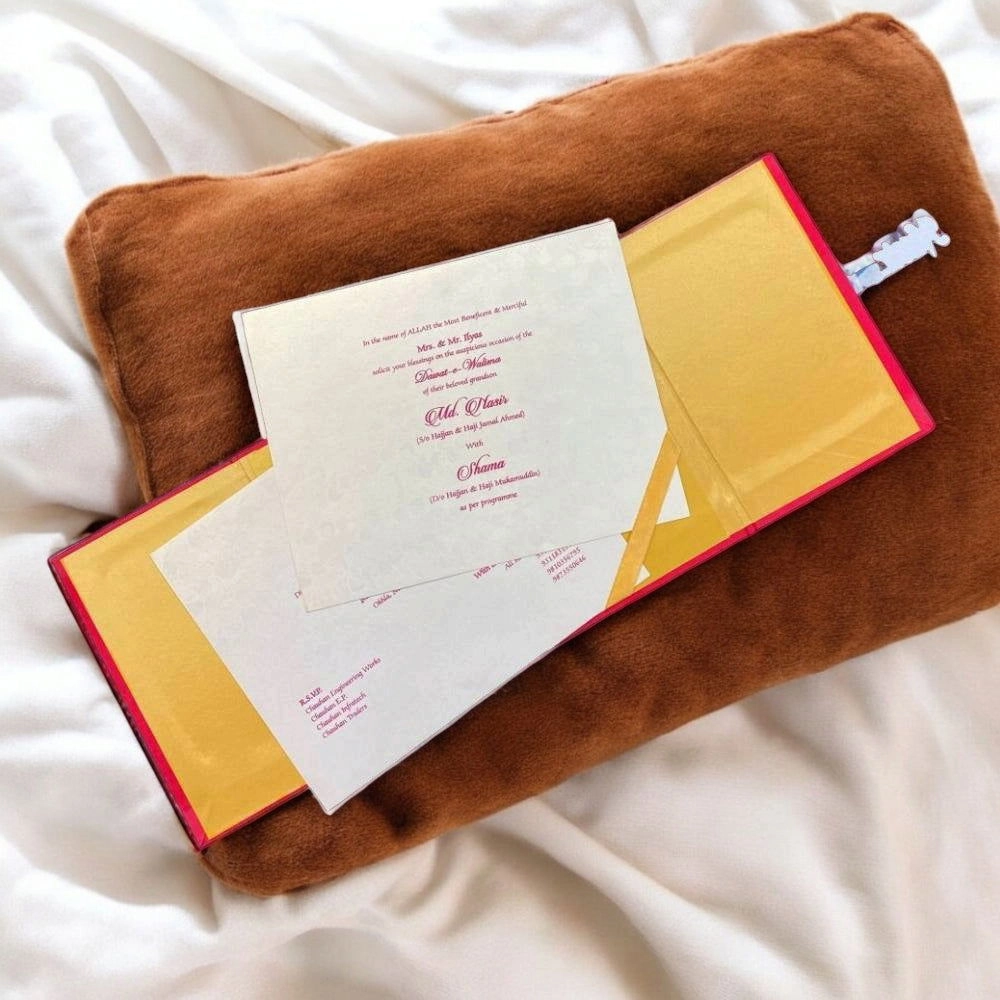 In the name of ALLAH the Most Beneficent & Merciful
Mrs. & Mr. Ilyas
solicit your blessings on the auspicious occasion of the
Dawat-e-Walima
of their beloved grandson
Md. Nasir
(S/o Hajjan & Haji Jamal Ahmed)
With
Shama
(D/o Hajjan & Haji Mukamuddin)
as per programme
Okhla,
With
All
9810356795
9873550646
R.S.V.P.
Chauhan Engineering Works
Chauhan E.P.
Chauhan Infratech
Chauhan Traders